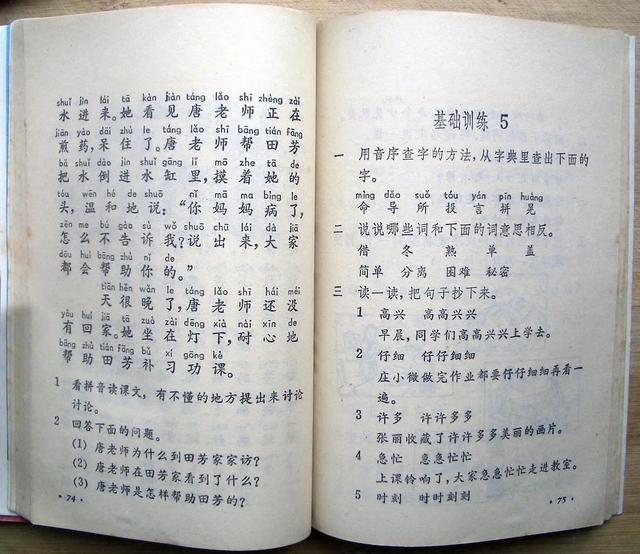 shuǐ jìn lái tā kàn jiàn táng lǎo shī zhèng zài
水进来。她看见唐老师正在
jiān yào dāi zhù le táng lǎo shī bāng tián fāng
煎药，呆住了。唐老师帮田芳
bǎ shuǐ dào jìn shuǐ gāng lǐ mō zhe tā de
把水倒进水缸里，摸着她的
tóu wēn hé de shuō nǐ mā ma bìng le
头，温和地说：“你妈妈病了，
zěn me bú gào sù wǒ shuō chū lái dà jiā
怎么不告诉我？说出来，大家
dōu huì bāng zhù nǐ de
都会帮助你的。”
tiān hěn wǎn le táng lǎo shī hái méi
天很晚了，唐老师还没
yǒu huí jiā tā zuò zài dēng xià nài xīn de
有回家。她坐在灯下，耐心地
bāng zhù tián fāng bǔ xí gōng kè
帮助田芳补习功课。
1 看拼音读课文，有不懂的地方提出来讨论
讨论。
2 回答下面的问题。
(1) 唐老师为什么到田芳家家访？
(2) 唐老师在田芳家看到了什么？
(3) 唐老师是怎样帮助田芳的？
· 74 ·
基础训练 5
一 用音序查字的方法，从字典里查出下面的
字。
mìng dǎo suǒ tóu yán pīn huàng
命 导 所 投 言 拼 晃
二 说说哪些词和下面的词意思相反。
借 冬 熟 单 盖
简单 分离 困难 秘密
三 读一读，把句子抄下来。
1 高兴 高高兴兴
早晨，同学们高高兴兴上学去。
2 仔细 仔仔细细
庄小微做完作业都要仔仔细细再看一
遍。
3 许多 许许多多
张丽收藏了许许多多美丽的画片。
4 急忙 急急忙忙
上课铃响了，大家急急忙忙走进教室。
5 时刻 时时刻刻
· 75 ·